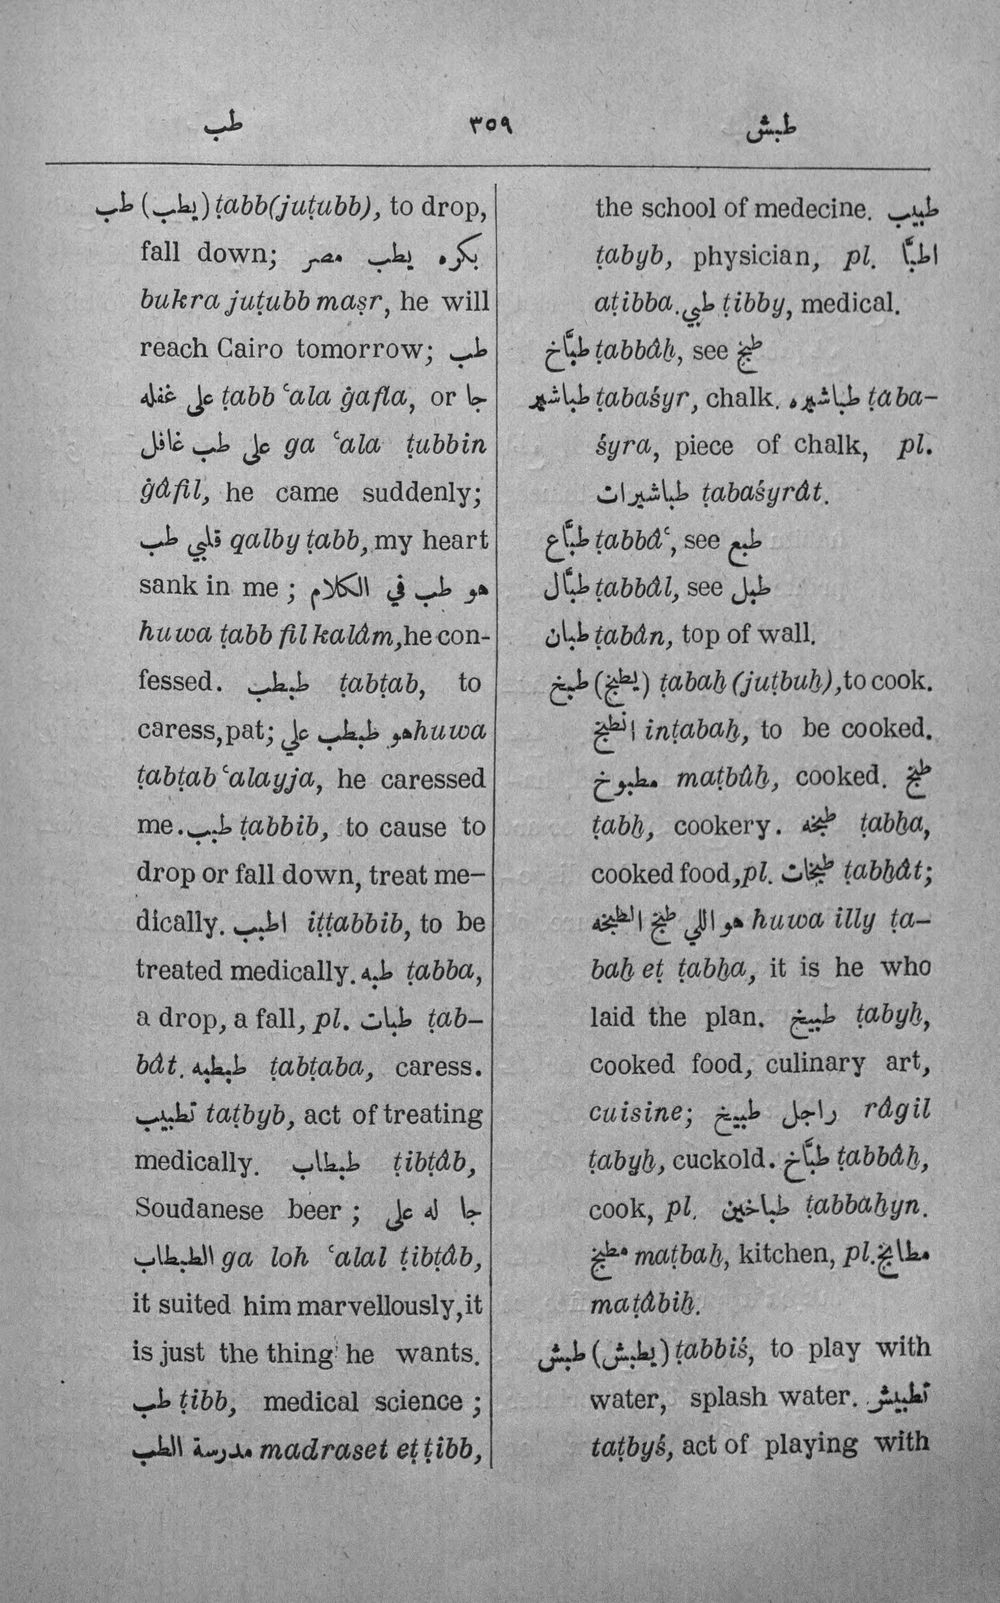 طب ٣٥٩ طبش
طب (يطب) ṭabb (juṭubb), to drop,
fall down; بكره يطب مصر
bukra juṭubb maṣr, he will
reach Cairo tomorrow; طب
على غفله ṭabb ʿala ġafla, or جا
على طب غافل ga ʿala ṭubbin
ġâfil, he came suddenly;
قلبي طب qalby ṭabb, my heart
sank in me; هو طب في الكلام
huwa ṭabb fil kalâm, he con-
fessed. طبطب ṭabṭab, to
caress, pat; هو طبطب علي huwa
ṭabṭab ʿalayja, he caressed
me. طبب ṭabbib, to cause to
drop or fall down, treat me-
dically. اطبب iṭṭabbib, to be
treated medically. طبه ṭabba,
a drop, a fall, pl. طبات ṭab-
bât. طبطبه ṭabṭaba, caress.
تطبيب taṭbyb, act of treating
medically. طبطاب ṭibṭâb,
Soudanese beer; جا له على
الطبطاب ga loh ʿalal ṭibṭâb,
it suited him marvellously, it
is just the thing he wants.
طب ṭibb, medical science;
مدرسة الطب madraset eṭ ṭibb,
the school of medecine. طبيب
ṭabyb, physician, pl. اطبَّا
aṭibba. طبي ṭibby, medical.
طبَّاخ ṭabbâḫ, see طبخ
طباشير ṭabaśyr, chalk. طباشيره ṭaba-
śyra, piece of chalk, pl.
طباشيرات ṭabaśyrât.
طبَّاع ṭabbâʿ, see طبع
طبَّال ṭabbâl, see طبل
طبان ṭabân, top of wall.
طبخ (يطبخ) ṭabaḫ (juṭbuḫ), to cook.
انطبخ inṭabaḫ, to be cooked.
مطبوخ maṭbûḫ, cooked. طبخ
ṭabḫ, cookery. طبخه ṭabḫa,
cooked food, pl. طبخات ṭabḫât;
هو اللي طبخ الطبخه huwa illy ṭa-
baḫ eṭ ṭabḫa, it is he who
laid the plan. طبيخ ṭabyḫ,
cooked food, culinary art,
cuisine; راجل طبيخ râgil
ṭabyḫ, cuckold. طبَّاخ ṭabbâḫ,
cook, pl. طباخين ṭabbaḫyn.
مطبخ maṭbaḫ, kitchen, pl. مطابخ
maṭâbiḫ.
طبش (يطبش) ṭabbiś, to play with
water, splash water. تطبيش
taṭbyś, act of playing with